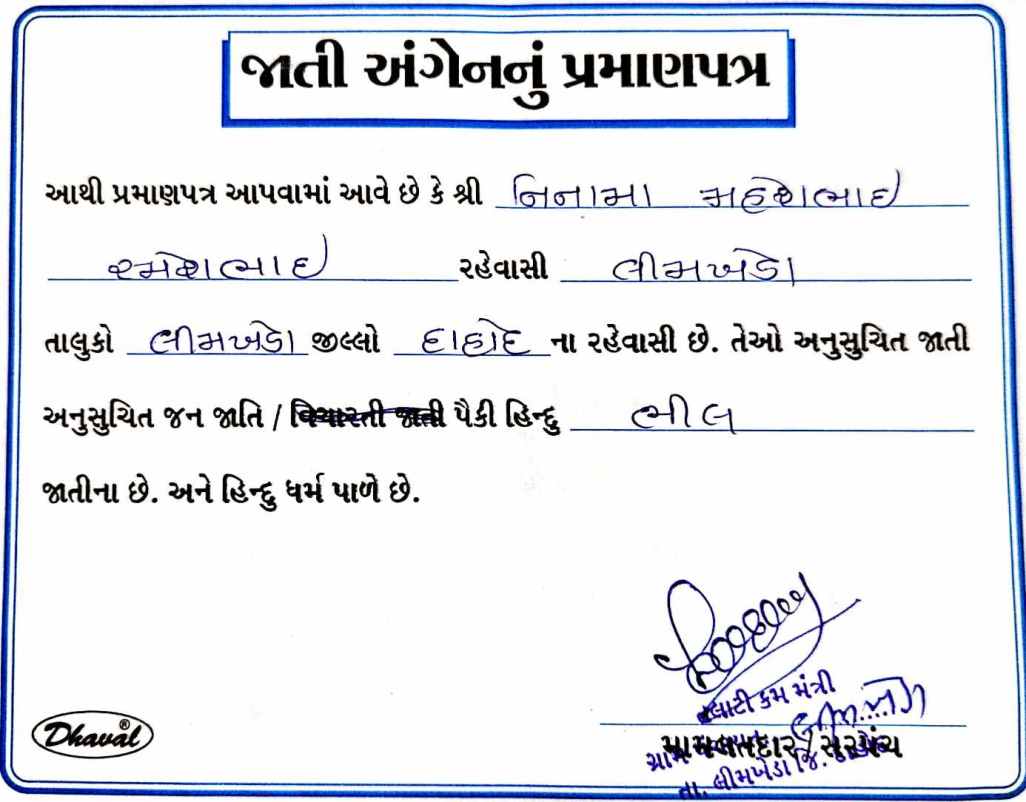 જાતી અંગેનનું પ્રમાણપત્ર
આથી પ્રમાણપત્ર આપવામાં આવે છે કે શ્રી નિનામા મહેશભાઈ
રમેશભાઈ રહેવાસી લીમખેડા
તાલુકો લીમખેડા જીલ્લો દાહોદ ના રહેવાસી છે. તેઓ અનુસુચિત જાતી
અનુસુચિત જન જાતિ / વિચારતી જાતી પૈકી હિન્દુ ભીલ
જાતીના છે. અને હિન્દુ ધર્મ પાળે છે.
તલાટી કમ મંત્રી
મામલતદાર / સરપંચ
ગ્રામ
તા. લીમખેડા જિ.
Dhaval®